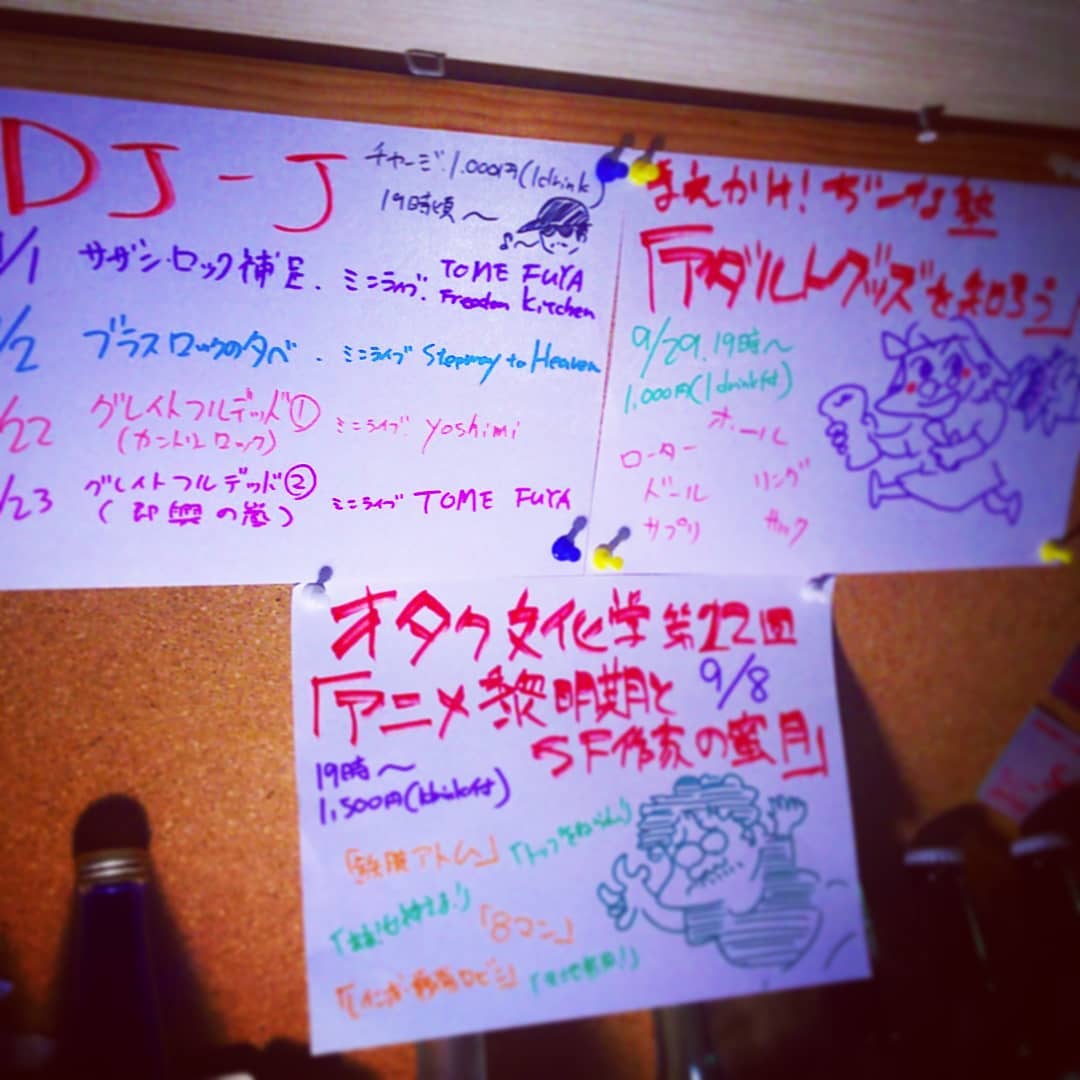 DJ-J
チャージ.1.000円(1drink)
19時頃～
/1 サザン・ロック補足. ミニライブ. TOME FUYA
Freedom Kitchen
/2 ブラスロックの夕べ. ミニライブ Stepway to Heaven
/22 グレイトフルデッド①
(カントリーロック)
ミニライブ. yoshimi
/23 グレイトフルデッド②
(即興の嵐)
ミニライブ TOME FUYA
まえかけ!ぢーな塾
「アダルトグッズを知ろう」
9/29.19時～
1.000円(1drink付)
ホール
ローター
リング
ドール
サプリ
サック
オタク文化学第22回
「アニメ黎明期と
9/8
SF作家の蜜月」
19時～
1,500円(1drink付)
「鉄腕アトム」
「8マン」